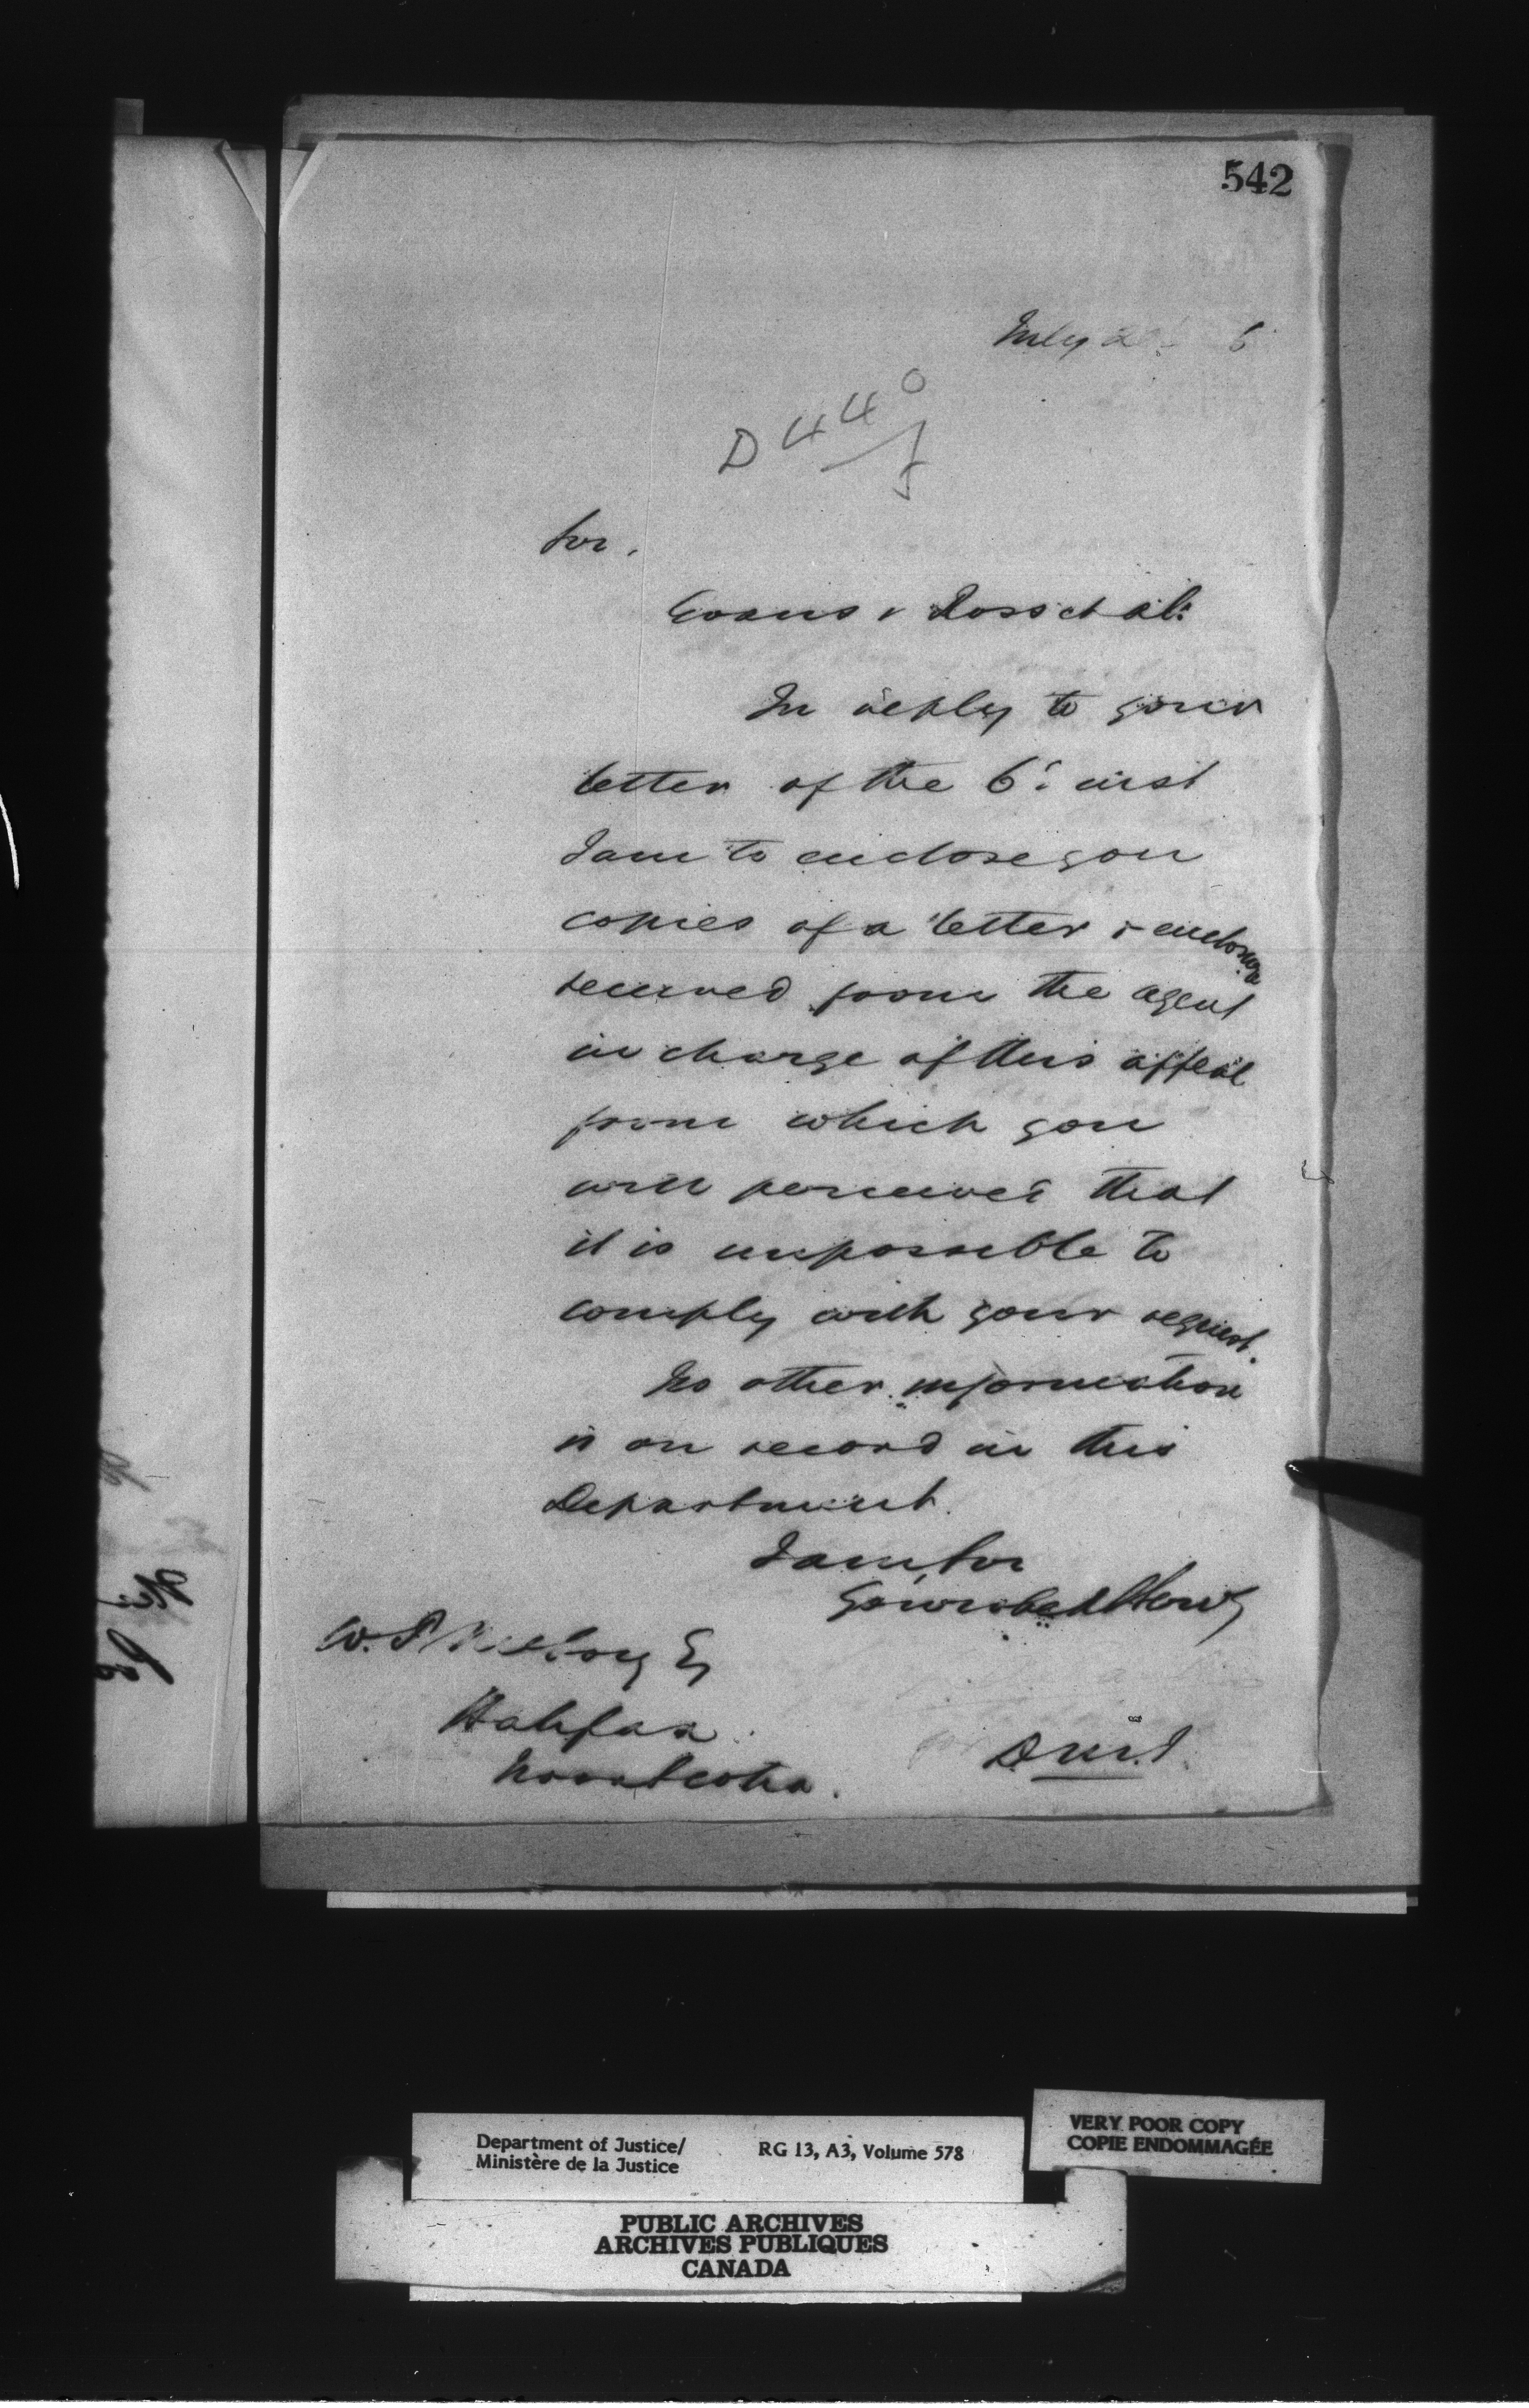 542
July 6
D 440
J
Sir,
Evans v Ross et al:
In reply to your
letter of the 6th inst
I am to enclose you
copies of a letter & enclosure
received from the agent
in charge of this appeal
from which you
will perceive that
it is impossible to
comply with your request.
No other information
is on record in this
Department.
I am, Sir
Your obed Serv
W.
Halifax
Nova Scotia.
D.M.J.
Department of Justice/
Ministère de la Justice
RG 13, A3, Volume 578
VERY POOR COPY
COPIE ENDOMMAGÉE
PUBLIC ARCHIVES
ARCHIVES PUBLIQUES
CANADA